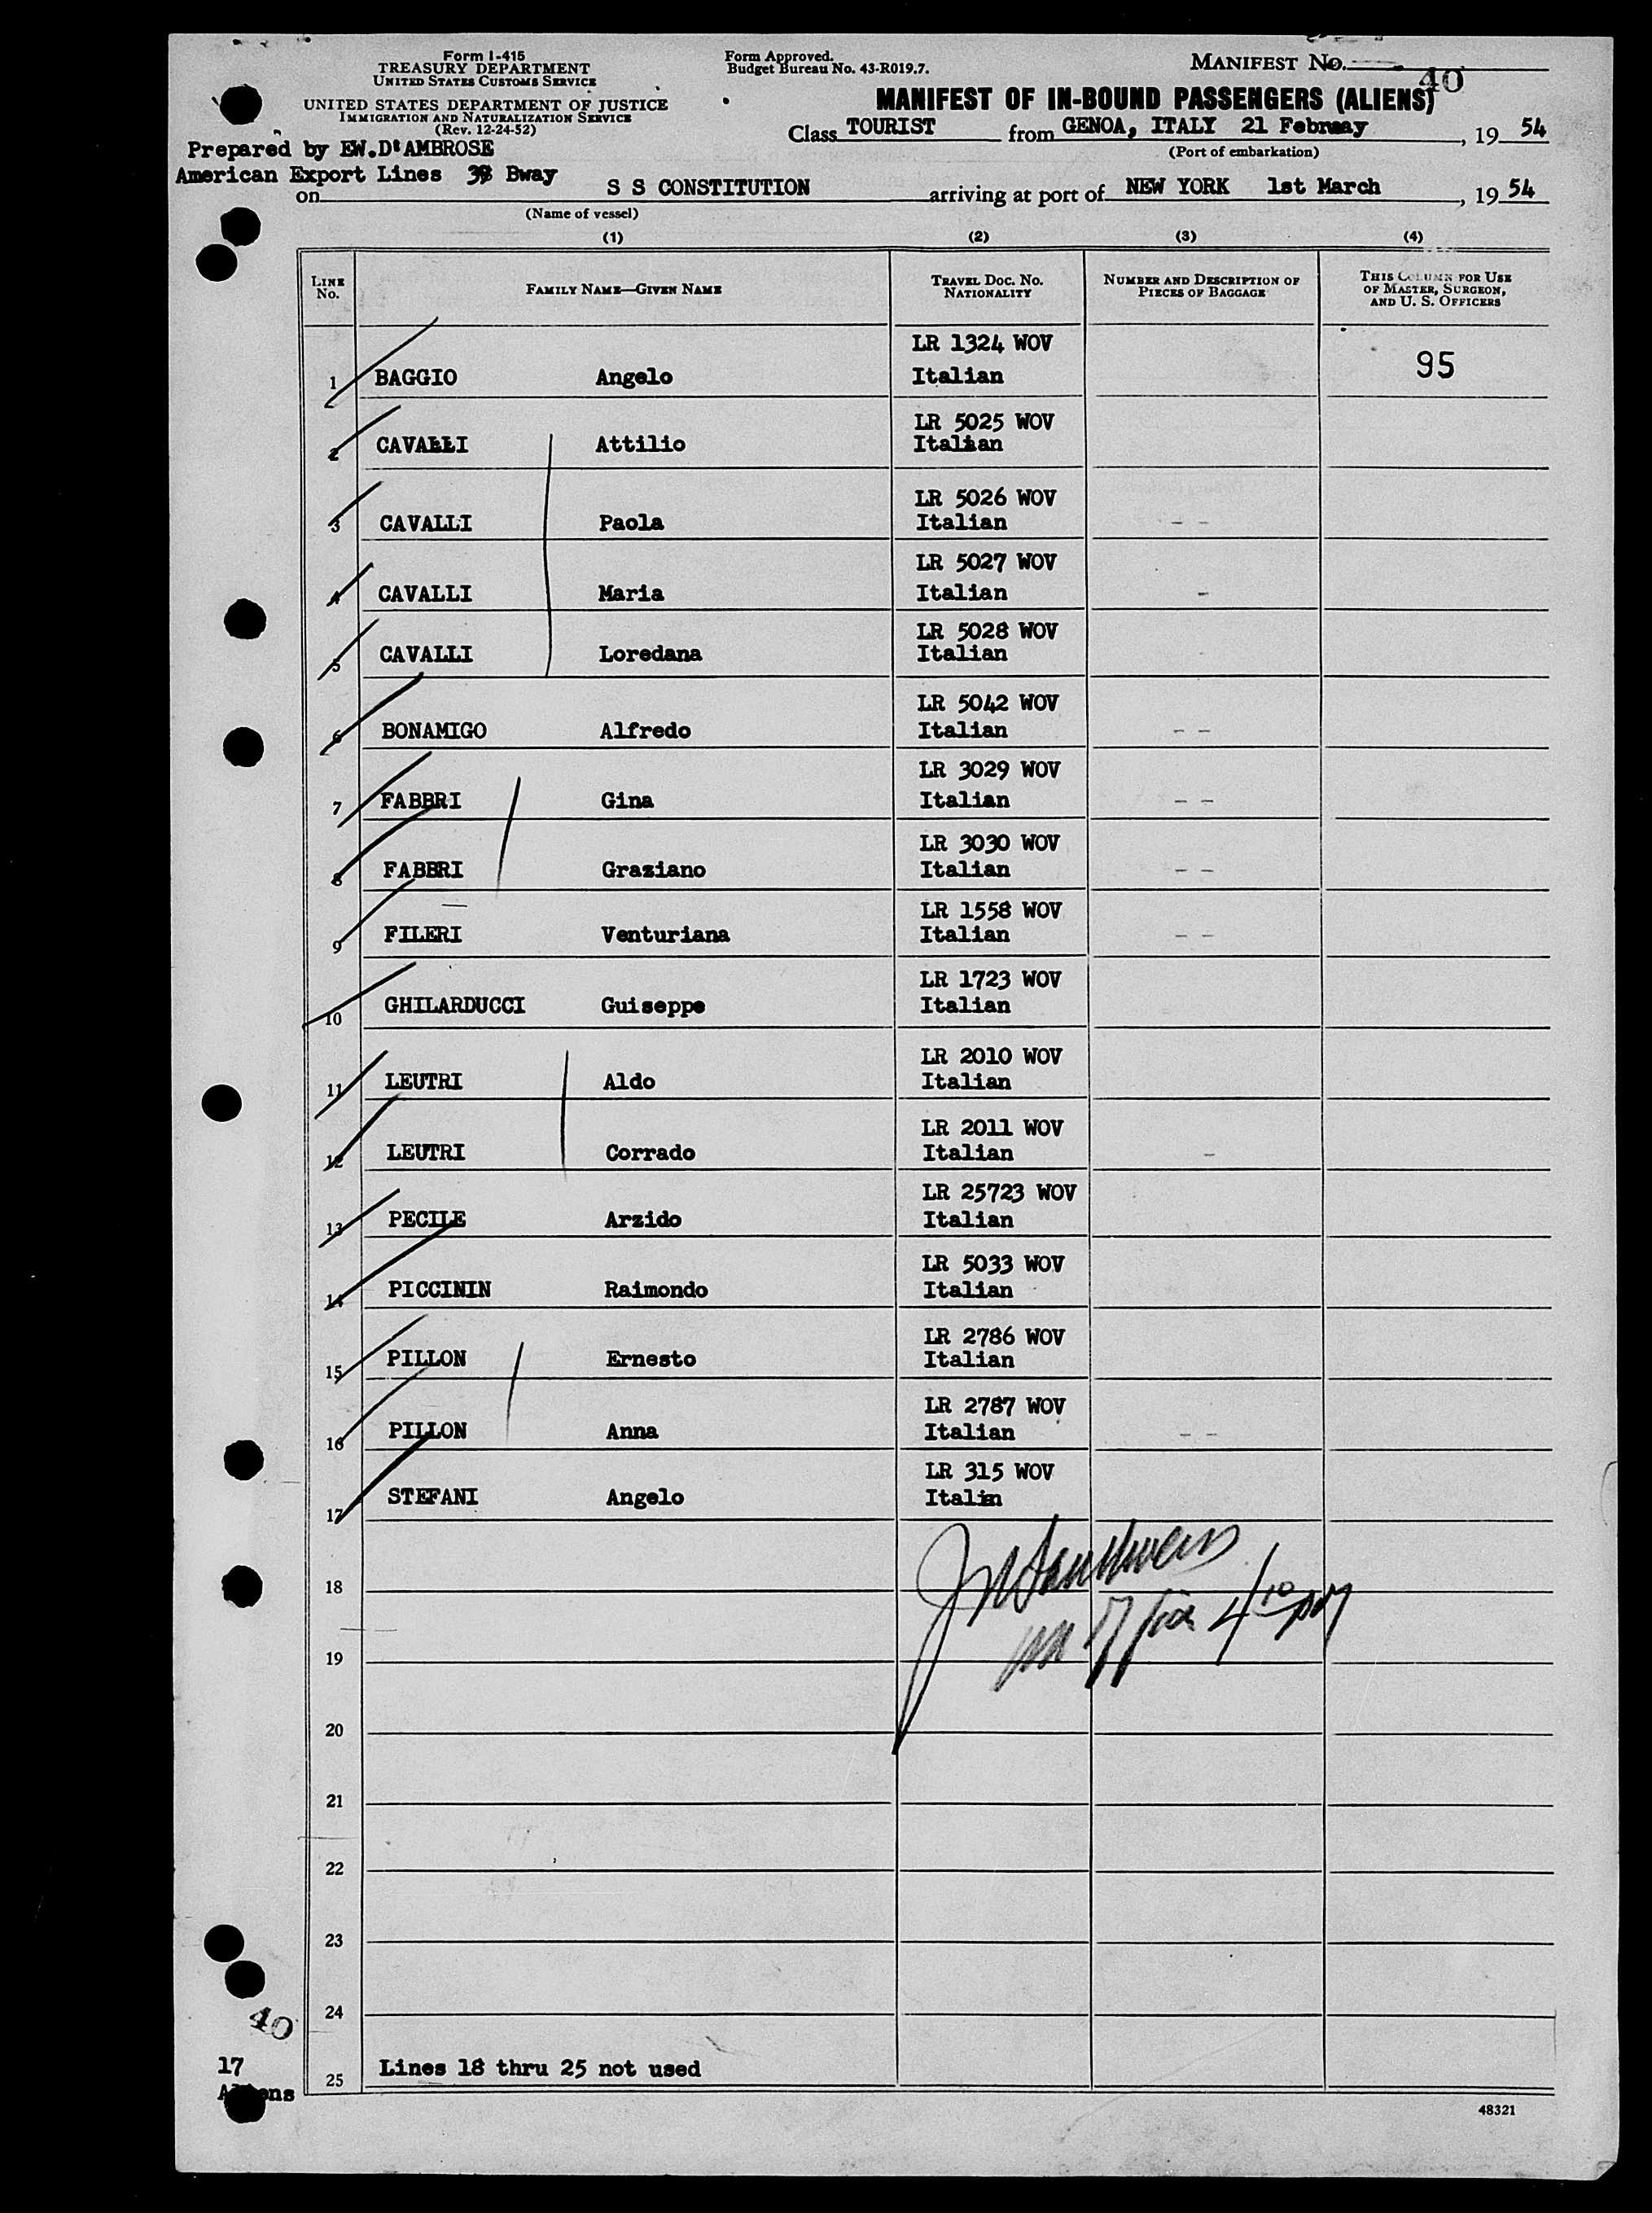 Form I-415
TREASURY DEPARTMENT
UNITED STATES CUSTOMS SERVICE
UNITED STATES DEPARTMENT OF JUSTICE
IMMIGRATION AND NATURALIZATION SERVICE
(Rev. 12-24-52)
Form Approved.
Budget Bureau No. 43-R019.7.
MANIFEST NO.
40
MANIFEST OF IN-BOUND PASSENGERS (ALIENS)
Class TOURIST from GENOA, ITALY 21 February, 19 54
(Port of embarkation)
Prepared by EW.D'AMBROSE
American Export Lines 39 Bway
on S S CONSTITUTION arriving at port of NEW YORK 1st March, 19 54
(Name of vessel)
(1) (2) (3) (4)
LINE NO. FAMILY NAME—GIVEN NAME TRAVEL DOC. NO. NATIONALITY NUMBER AND DESCRIPTION OF PIECES OF BAGGAGE THIS COLUMN FOR USE OF MASTER, SURGEON, AND U. S. OFFICERS
LR 1324 WOV
1 BAGGIO Angelo Italian 95
LR 5025 WOV
2 CAVALLI Attilio Italian
LR 5026 WOV
3 CAVALLI Paola Italian - -
LR 5027 WOV
4 CAVALLI Maria Italian -
LR 5028 WOV
5 CAVALLI Loredana Italian
LR 5042 WOV
6 BONAMIGO Alfredo Italian - -
LR 3029 WOV
7 FABBRI Gina Italian - -
LR 3030 WOV
8 FABBRI Graziano Italian - -
LR 1558 WOV
9 FILERI Venturiana Italian - -
LR 1723 WOV
10 GHILARDUCCI Guiseppe Italian
LR 2010 WOV
11 LEUTRI Aldo Italian
LR 2011 WOV
12 LEUTRI Corrado Italian -
LR 25723 WOV
13 PECILE Arzido Italian
LR 5033 WOV
14 PICCININ Raimondo Italian
LR 2786 WOV
15 PILLON Ernesto Italian
LR 2787 WOV
16 PILLON Anna Italian - -
LR 315 WOV
17 STEFANI Angelo Italin
18
19
20
21
22
23
24
40
17
Aliens
25 Lines 18 thru 25 not used
48321